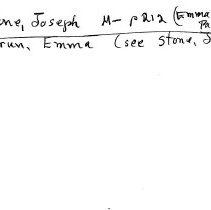 one, Joseph M- p212 (Emma
Pa
run, Emma (see Stone, J